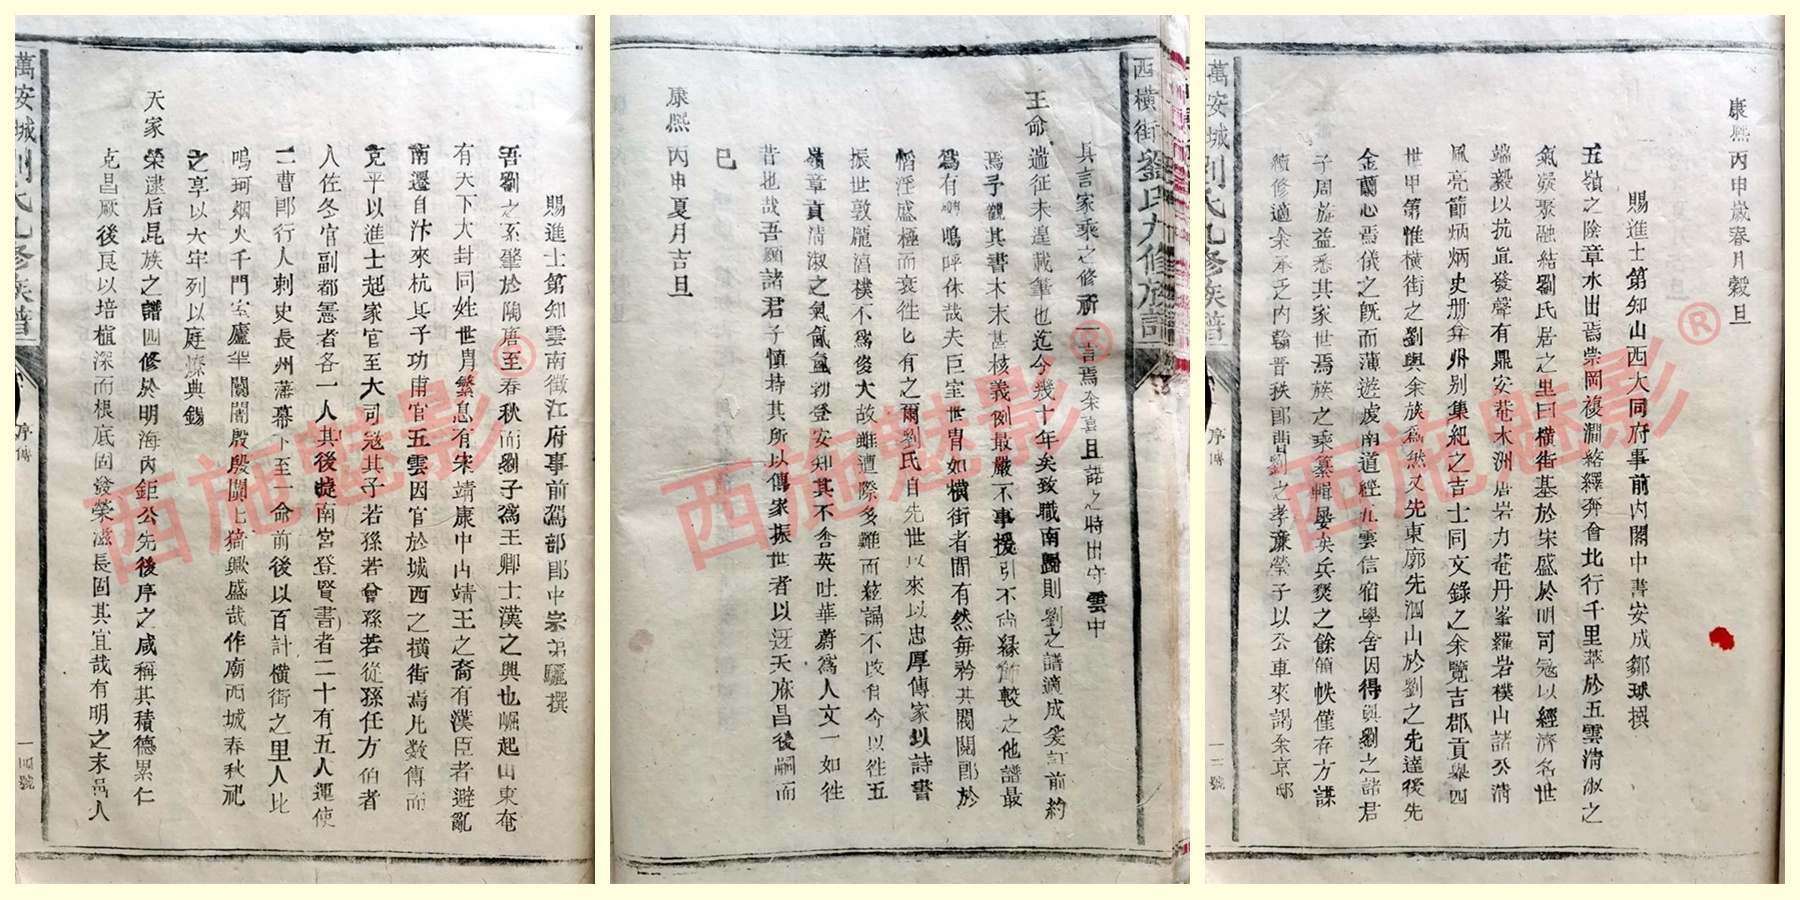 康熙丙申歲春月穀旦
賜進士第知山西大同府事前內閣中書安成鄒球撰
五嶺之陰章水出焉崇岡複澗絡繹奔會北行千里萃於五雲清淑之
氣凝聚融結劉氏居之里曰橫街基於宋盛於明司寇以經濟名世
端毅以抗直發聲有鼎安菴木洲唐岩力菴丹峯羅岩樸山諸公清
風亮節炳炳史册弇州别集紀之吉士同文錄之余覽吉郡貢舉四
世甲第惟橫街之劉與余族為然又先東廓先泗山於劉之先達後先
金蘭心焉儀之既而薄遊虔南道經五雲信宿學舍因得與劉之諸君
子周旋益悉其家世焉族之乘纂輯屢矣兵燹之餘簡帙僅存方謀
續修適余承乏內翰晋秩郎曹劉之孝廉瑩子以公車來謁余京邸
萬安城劉氏九修族譜
序傳
一三號
西橫街劉氏九修族譜
具言家乘之修祈一言焉余喜且諾之時出守雲中
王命遄征未遑載筆也迄今幾十年矣致職南歸則劉之譜適成爰訂前約
焉予觀其書本末甚核義例最嚴不事援引不尚緣飾較之他譜最
為有 嗚呼休哉夫巨室世胄如橫街者間有然每矜其閥閱即於
慆淫盛極而衰徃徃有之爾劉氏自先世以來以忠厚傳家以詩書
振世敦龐湻樸不為俊大故雖遭際多難而絃誦不改自今以徃五
嶺章貢清淑之氣氤氳勃登安知其不含英吐華蔚為人文一如徃
昔也哉吾願諸君子慎持其所以傳家振世者以迓天庥昌後嗣而
已
康熙丙申夏月吉旦
賜進士第知雲南徵江府事前駕部郎中宗弟驪撰
吾劉之系肇於陶唐至春秋而劉子為王卿士漢之興也崛起山東奄
有天下大封同姓世胄繁息有宋靖康中山靖王之裔有漢臣者避亂
南遷自汴來杭其子功甫官五雲因官於城西之橫街焉凡數傳而
克平以進士起家官至大司寇其子若孫若曾孫若從孫任方伯者
八佐冬官副都憲者各一人其後捷南宮登賢書者二十有五人運使
二曹郎行人刺史長州藩幕下至一命前後以百計橫街之里人比
鳴珂烟火千門室廬羋闤闠殷殷闐闐猗歟盛哉作廟西城春秋祀
之享以大牢列以庭燎典錫
天家
榮逮后昆族之譜四修於明海內鉅公先後序之咸稱其積德累仁
克昌厥後良以培植深而根底固發榮滋長固其宜哉有明之末邑人
萬安城劉氏九修族譜
序傳
一四號
西施魅影®
西施魅影®
西施魅影®